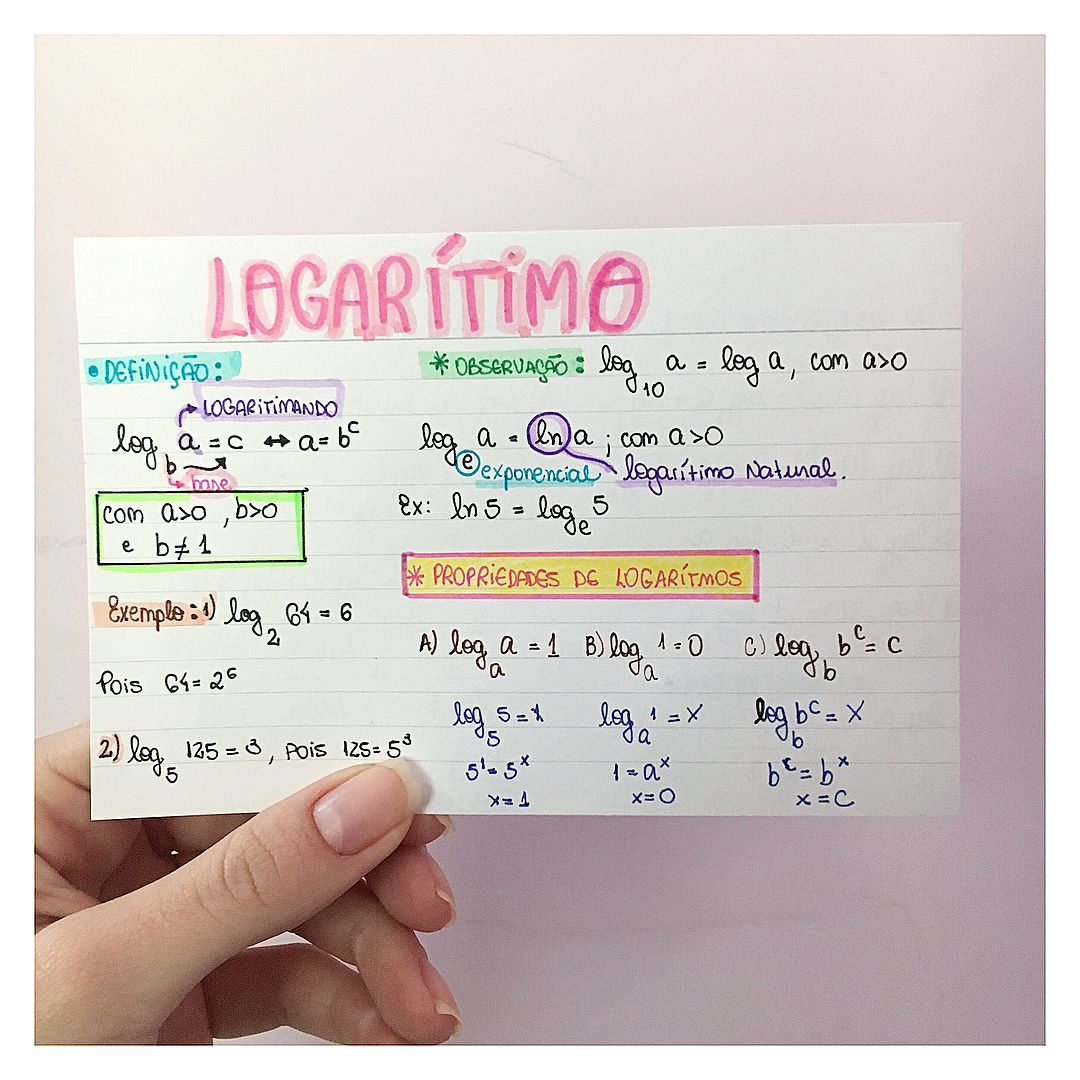 LOGARÍTIMO
• DEFINIÇÃO:
LOGARITIMANDO
log_b a = c ↔ a = b^c
base
com a>0 , b>0
e b ≠ 1
Exemplo: 1) log_2 64 = 6
Pois 64 = 2^6
2) log_5 125 = 3, pois 125 = 5^3
* OBSERVAÇÃO: log_10 a = log a, com a>0
log_e a = ln a ; com a>0
exponencial logarítimo Natural.
Ex: ln 5 = log_e 5
* PROPRIEDADES DE LOGARÍTMOS
A) log_a a = 1 B) log_a 1 = 0 C) log_b b^c = c
log_5 5 = x log_a 1 = x log_b b^c = x
5^1 = 5^x 1 = a^x b^c = b^x
x = 1 x = 0 x = c